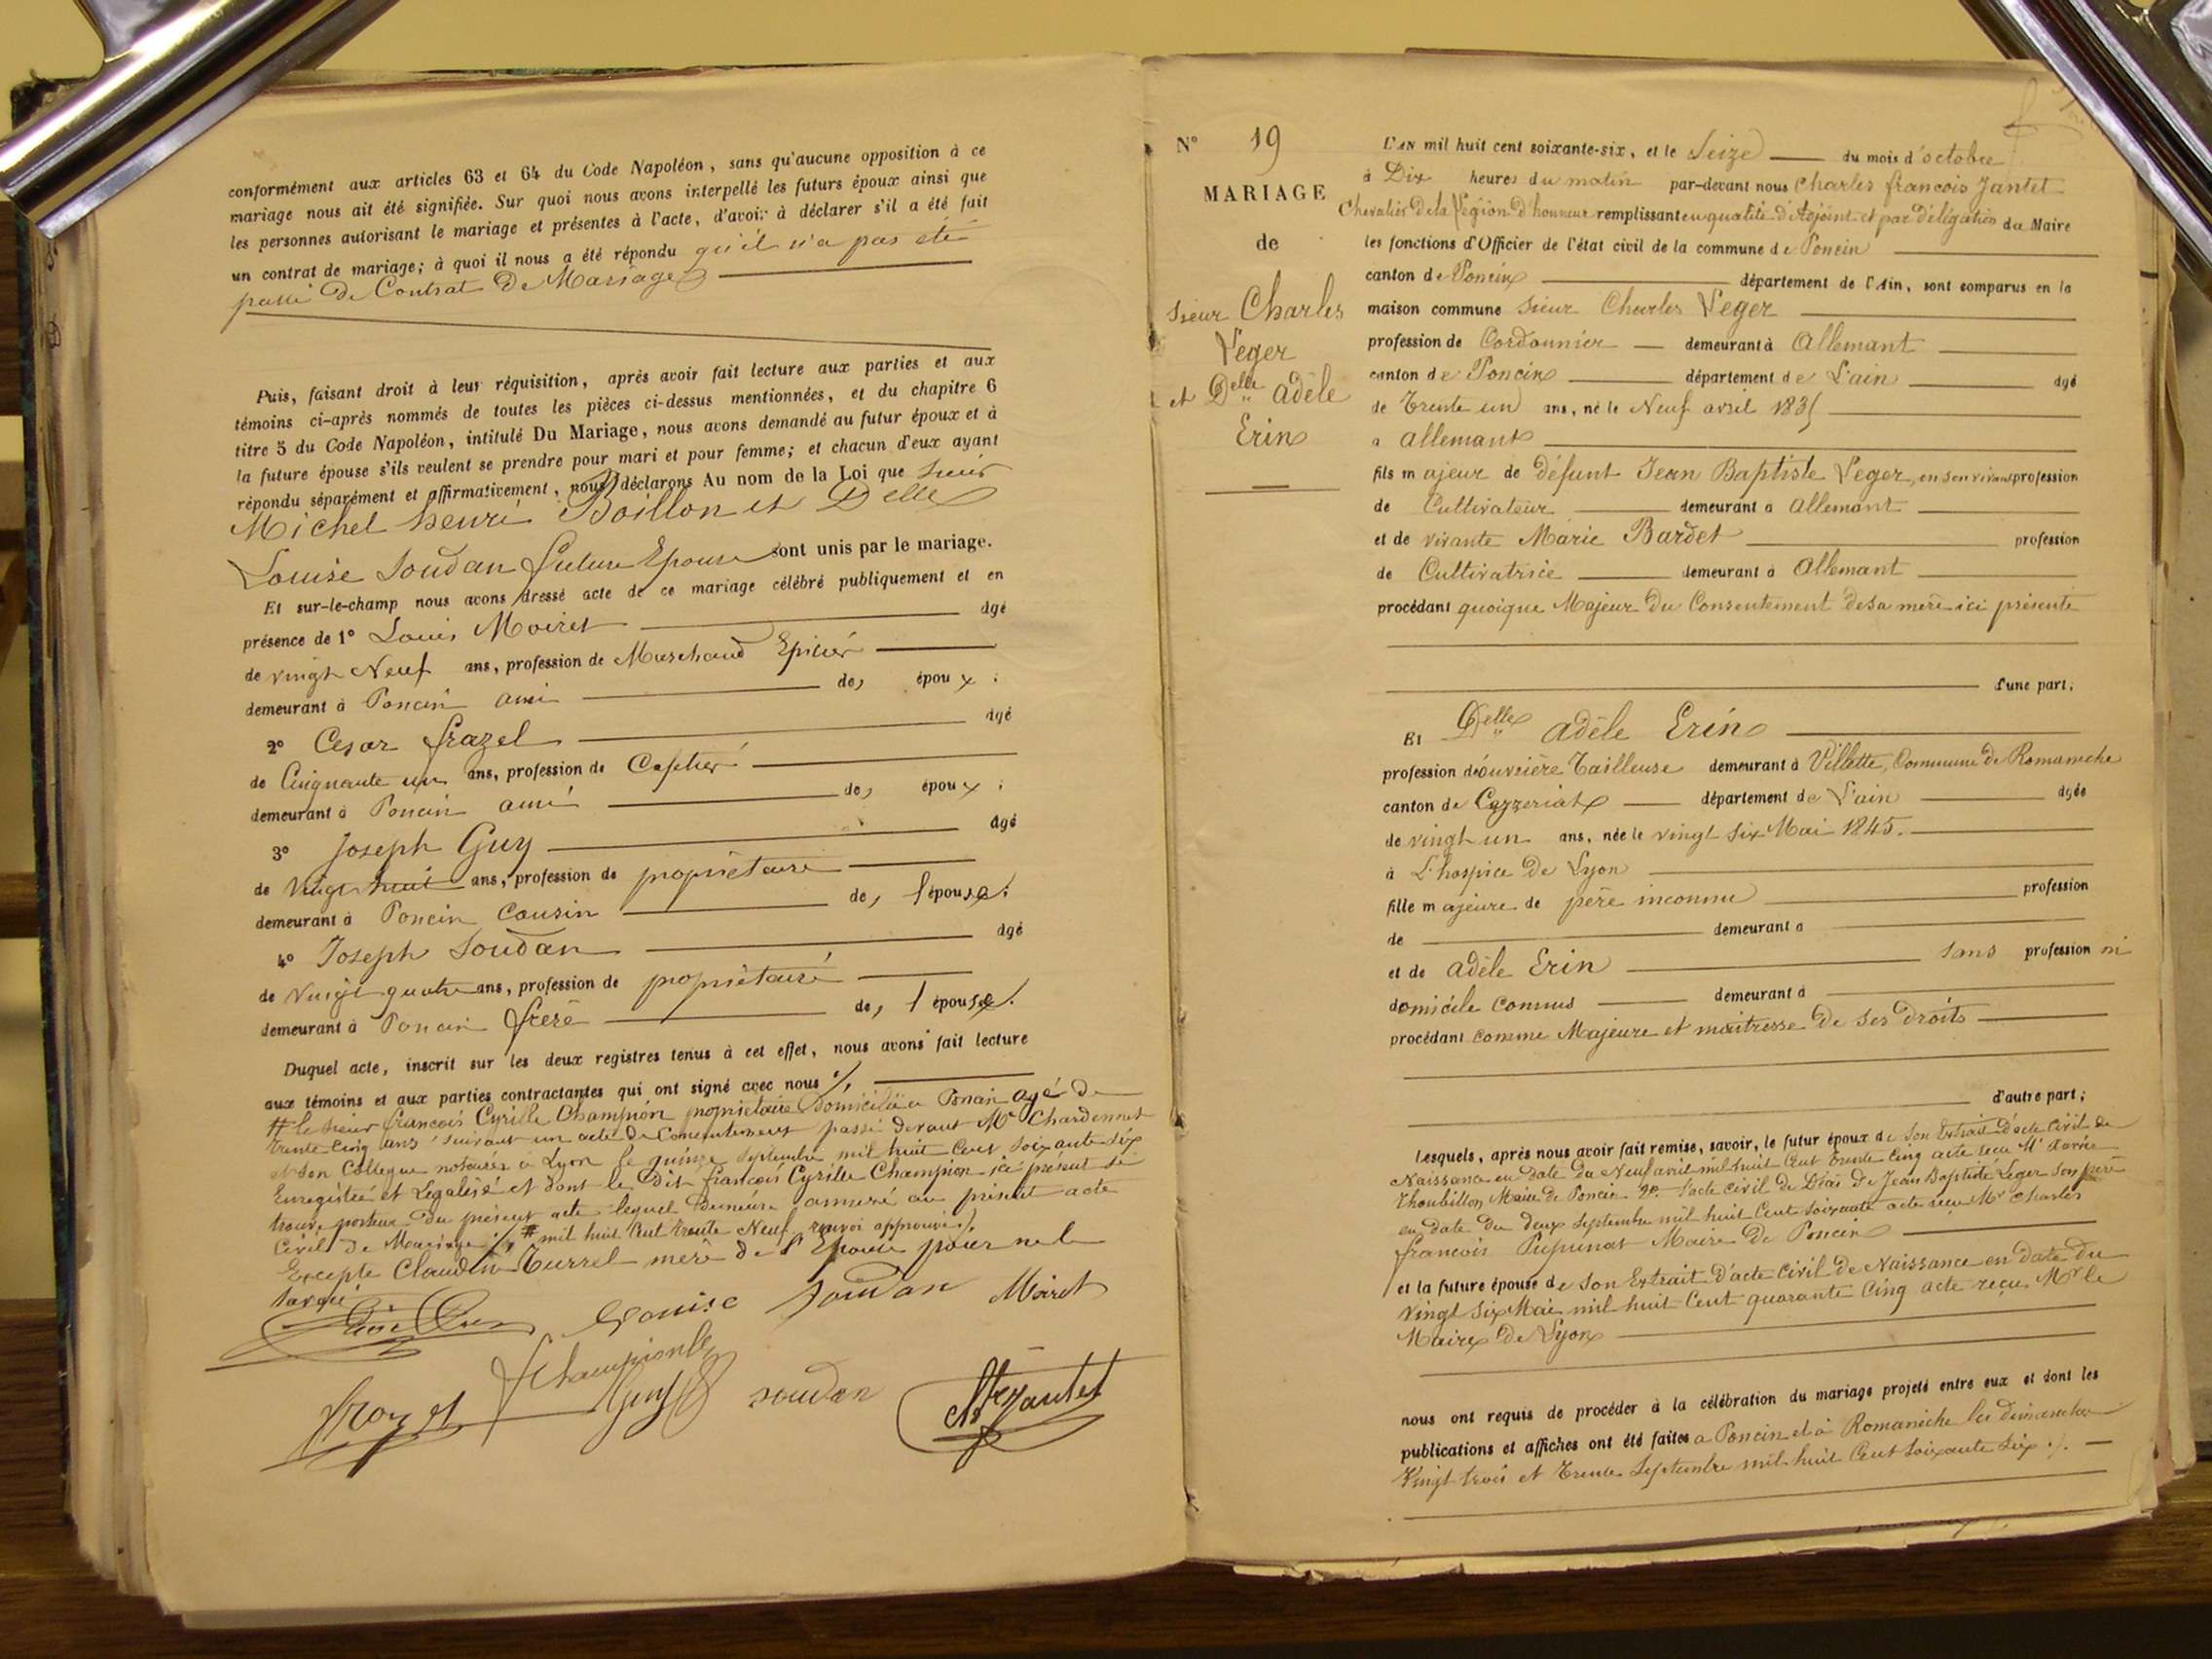 conformément aux articles 63 et 64 du Code Napoléon, sans qu'aucune opposition à ce
mariage nous ait été signifiée. Sur quoi nous avons interpellé les futurs époux ainsi que
les personnes autorisant le mariage et présentes à l'acte, d'avoir à déclarer s'il a été fait
un contrat de mariage; à quoi il nous a été répondu qu'il n'a pas été
passé de Contrat de Mariage
Puis, faisant droit à leur réquisition, après avoir fait lecture aux parties et aux
témoins ci-après nommés de toutes les pièces ci-dessus mentionnées, et du chapitre 6
titre 5 du Code Napoléon, intitulé Du Mariage, nous avons demandé au futur époux et à
la future épouse s'ils veulent se prendre pour mari et pour femme; et chacun d'eux ayant
répondu séparément et affirmativement, nous déclarons Au nom de la Loi que sieur
Michel henri Boillon et Delle
Louise Soudan future Epouse sont unis par le mariage.
Et sur-le-champ nous avons dressé acte de ce mariage célébré publiquement et en
présence de 1° Louis Moiret âgé
de vingt Neuf ans, profession de Marchand Epicier
demeurant à Poncin ami de, époux;
2° Cesar frazel âgé
de Cinquante un ans, profession de
demeurant à Poncin ami de, époux;
3° Joseph Guy âgé
de Vingt huit ans, profession de propriétaire
demeurant à Poncin Cousin de, l'épouse;
4° Joseph Soudan âgé
de Vingt quatre ans, profession de propriétaire
demeurant à Poncin frère de, l'épouse.
Duquel acte, inscrit sur les deux registres tenus à cet effet, nous avons fait lecture
aux témoins et aux parties contractantes qui ont signé avec nous
# le sieur francois Cyrille Champion propriétaire domicilié à Poncin agé de
trente Cinq ans suivant un acte de Consentement passé devant Me Chardennet
et son Collegue notaires à Lyon le quinze septembre mil huit Cent soixante six
Enregistré et Legalisé et dont le dit francois Cyrille Champion ici présent se
trouve porteur du présent acte lequel demeure annexé au présent acte
Civil de Mariage # mil huit Cent trente Neuf renvoi approuvé
Excepte Claudine Turrel mere de l'Epouse pour ne le
savoir
Louise Soudan Moiret
fChampion
Guy soudan
Ch Jantet
N° 19
MARIAGE
de
sieur Charles
Leger
et Delle adèle
Erin
L'AN mil huit cent soixante-six, et le Seize du mois d'octobre
à Dix heures du matin par-devant nous Charles francois Jantet
Chevalier de la Légion d'honneur remplissant en qualité d'Adjoint et par délégation du Maire
les fonctions d'Officier de l'état civil de la commune de Poncin
canton de Poncin département de l'Ain, sont comparus en la
maison commune sieur Charles Leger
profession de Cordonnier demeurant à Allemant
canton de Poncin département de L'ain âgé
de Trente un ans, né le Neuf avril 1835
à allemant
fils majeur de défunt Jean Baptiste Leger, en son vivant profession
de Cultivateur demeurant à allemant
et de vivante Marie Bardet profession
de Cultivatrice demeurant à Allemant
procédant quoique Majeur du Consentement de sa mère ici présente
d'une part;
Et Delle adèle Erin
profession d'ouvrière Tailleuse demeurant à Villette, Commune de Romaneche
canton de Ceyzeriat département de L'ain âgée
de vingt un ans, née le vingt six Mai 1845.
à L'hospice de Lyon
fille majeure de père inconnu profession
de demeurant à
et de adèle Erin sans profession ni
domicile connus demeurant à
procédant comme Majeure et maitresse de ses droits
d'autre part;
Lesquels, après nous avoir fait remise, savoir, le futur époux de son Extrait d'acte Civil de
Naissance en date du Neuf avril mil huit Cent trente Cinq acte reçu Mr
Thoubillon Maire de Poncin 2° l'acte civil de Décès de Jean Baptiste Leger son père
en date du deux septembre mil huit Cent soixante acte reçu Mr Charles
francois Pupunat Maire de Poncin
et la future épouse de son Extrait d'acte Civil de Naissance en date du
vingt six Mai mil huit Cent quarante Cinq acte reçu Mr le
Maire de Lyon
nous ont requis de procéder à la célébration du mariage projeté entre eux et dont les
publications et affiches ont été faites à Poncin et à Romaneche les dimanches
Vingt trois et trente Septembre mil huit Cent soixante six.